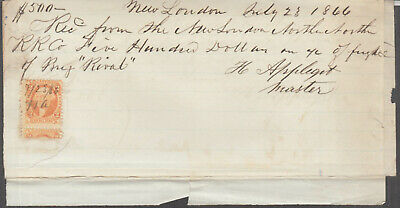 $500– New London July 28 1866
Rec from the New London Northern North
RR Co Five Hundred Dollars on of
of Brig "Rival"
H Applegit
Master